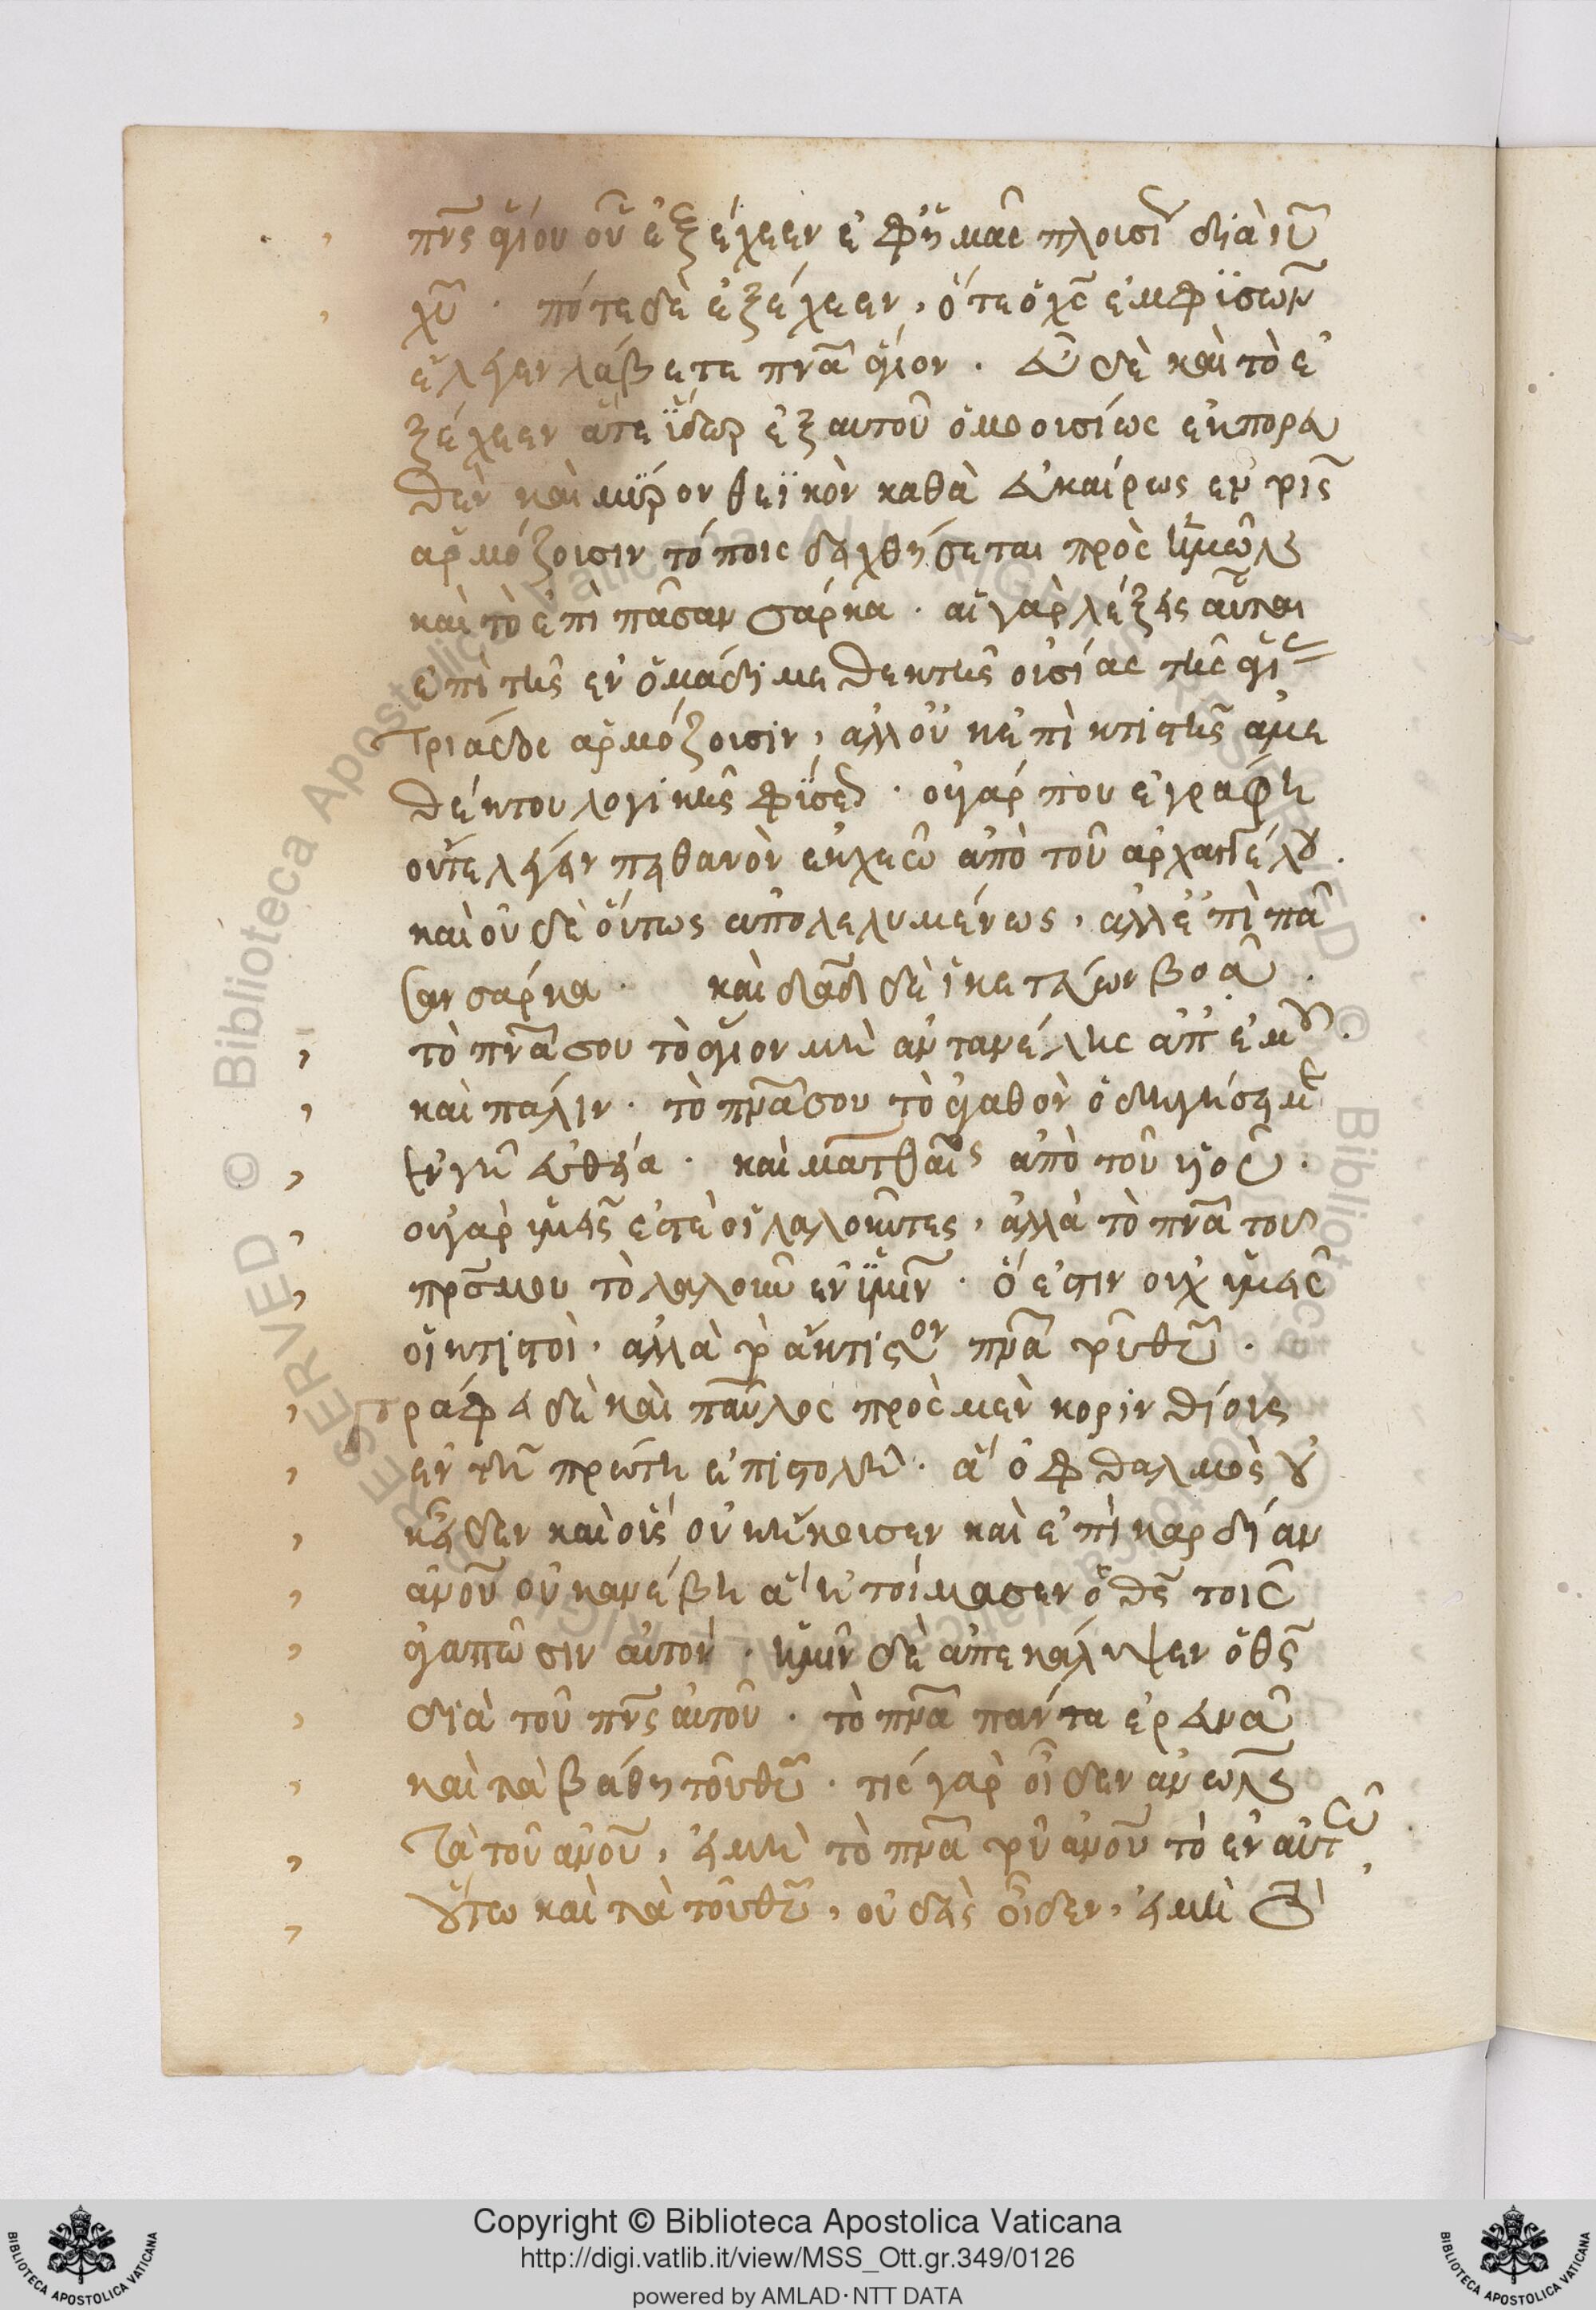 πνς ἁγίου οὗ ἐξέχεεν ἐφ ἡμᾶς πλουσί διὰ ιυ
χυ · πότε δὲ ἐξέχεεν, ὅτε ὁ χς ἐμφυσῶν
ἔλεγεν λάβετε πνα ἅγιον · εὖ δὲ καὶ τὸ ἐ
ξέχεεν ἅτε ὕδωρ ἐξ αυτοῦ ὁμοουσίως ἐκπορευ
θεν καὶ μύρον θεϊκὸν καθὰ εὐκαίρως ἐν τοῖς
αρμόζουσιν τόποις δειχθήσεται πρὸς ἡμῶν
καὶ τὸ ἐπὶ πᾶσαν σάρκα · αἱ γὰρ λέξεις αὗται
ἐπὶ τῆς ἐν ὁμάδι μεθεκτῆς οὐσίας τῆς ἁγί
Τριάδος αρμόζουσιν, ἀλλ οὐκ ἐπὶ κτιστῆς ἀμε
θέκτου λογικῆς φύσε · οὐ γάρ που ἐγράφη
οὔτε λέγειν πιθανὸν ἐκχεῶ ἀπὸ τοῦ αρχαγγέλου .
καὶ οὐδὲ οὕτως απολελυμένως, ἀλλ ἐπὶ πᾶ
σαν σάρκα · καὶ δαδ δὲ ἱκετεύων βοᾶ .
τὸ πνα σου τὸ ἅγιον μὴ αντανέλης ἀπ ἐμοῦ .
καὶ πάλιν · τὸ πνα σου τὸ ἀγαθὸν ὁδηγήσει μ
ἐν γῇ εὐθεία · καὶ ματθαῖς ἀπὸ τοῦ
οὐ γὰρ ὑμεῖς ἐστὲ οἱ λαλοῦντες, ἀλλὰ τὸ πνα του
πρσ μου τὸ λαλοῦν ἐν ὑμῖν · ὅ ἐστιν οὐχ ὑμεῖς
οἱ κτιστοὶ, ἀλλὰ τὸ ἄκτιστον πνα τοῦ θυ .
γράφει δὲ καὶ παῦλος πρὸς μὲν κορινθίους
ἐν τῇ πρώτη ἐπιστολῆ · ἃ ὀφθαλμὸς οὐ
κ εἶδεν καὶ οὖς οὐκ ἤκουσεν καὶ ἐπὶ καρδίαν
ανου οὐκ ανέβη ἃ ἡτοίμασεν ὁ θς τοῖς
ἀγαπῶσιν αὐτον · ἡμῖν δὲ ἀπεκάλυψεν ὁ θς
διὰ τοῦ πνς αὐτοῦ · τὸ πνα πάντα ἐρευνᾶ
καὶ τὰ βάθη τοῦ θυ · τίς γὰρ οἶδεν ανων
Τὰ τοῦ ανου, εἰ μὴ τὸ πνα τοῦ ανου τὸ ἐν αὐτῶ .
οὕτω καὶ τὰ τοῦ θυ, οὐδεὶς οἶδεν, εἰ μὴ τὸ
Copyright © Biblioteca Apostolica Vaticana
http://digi.vatlib.it/view/MSS_Ott.gr.349/0126
powered by AMLAD · NTT DATA